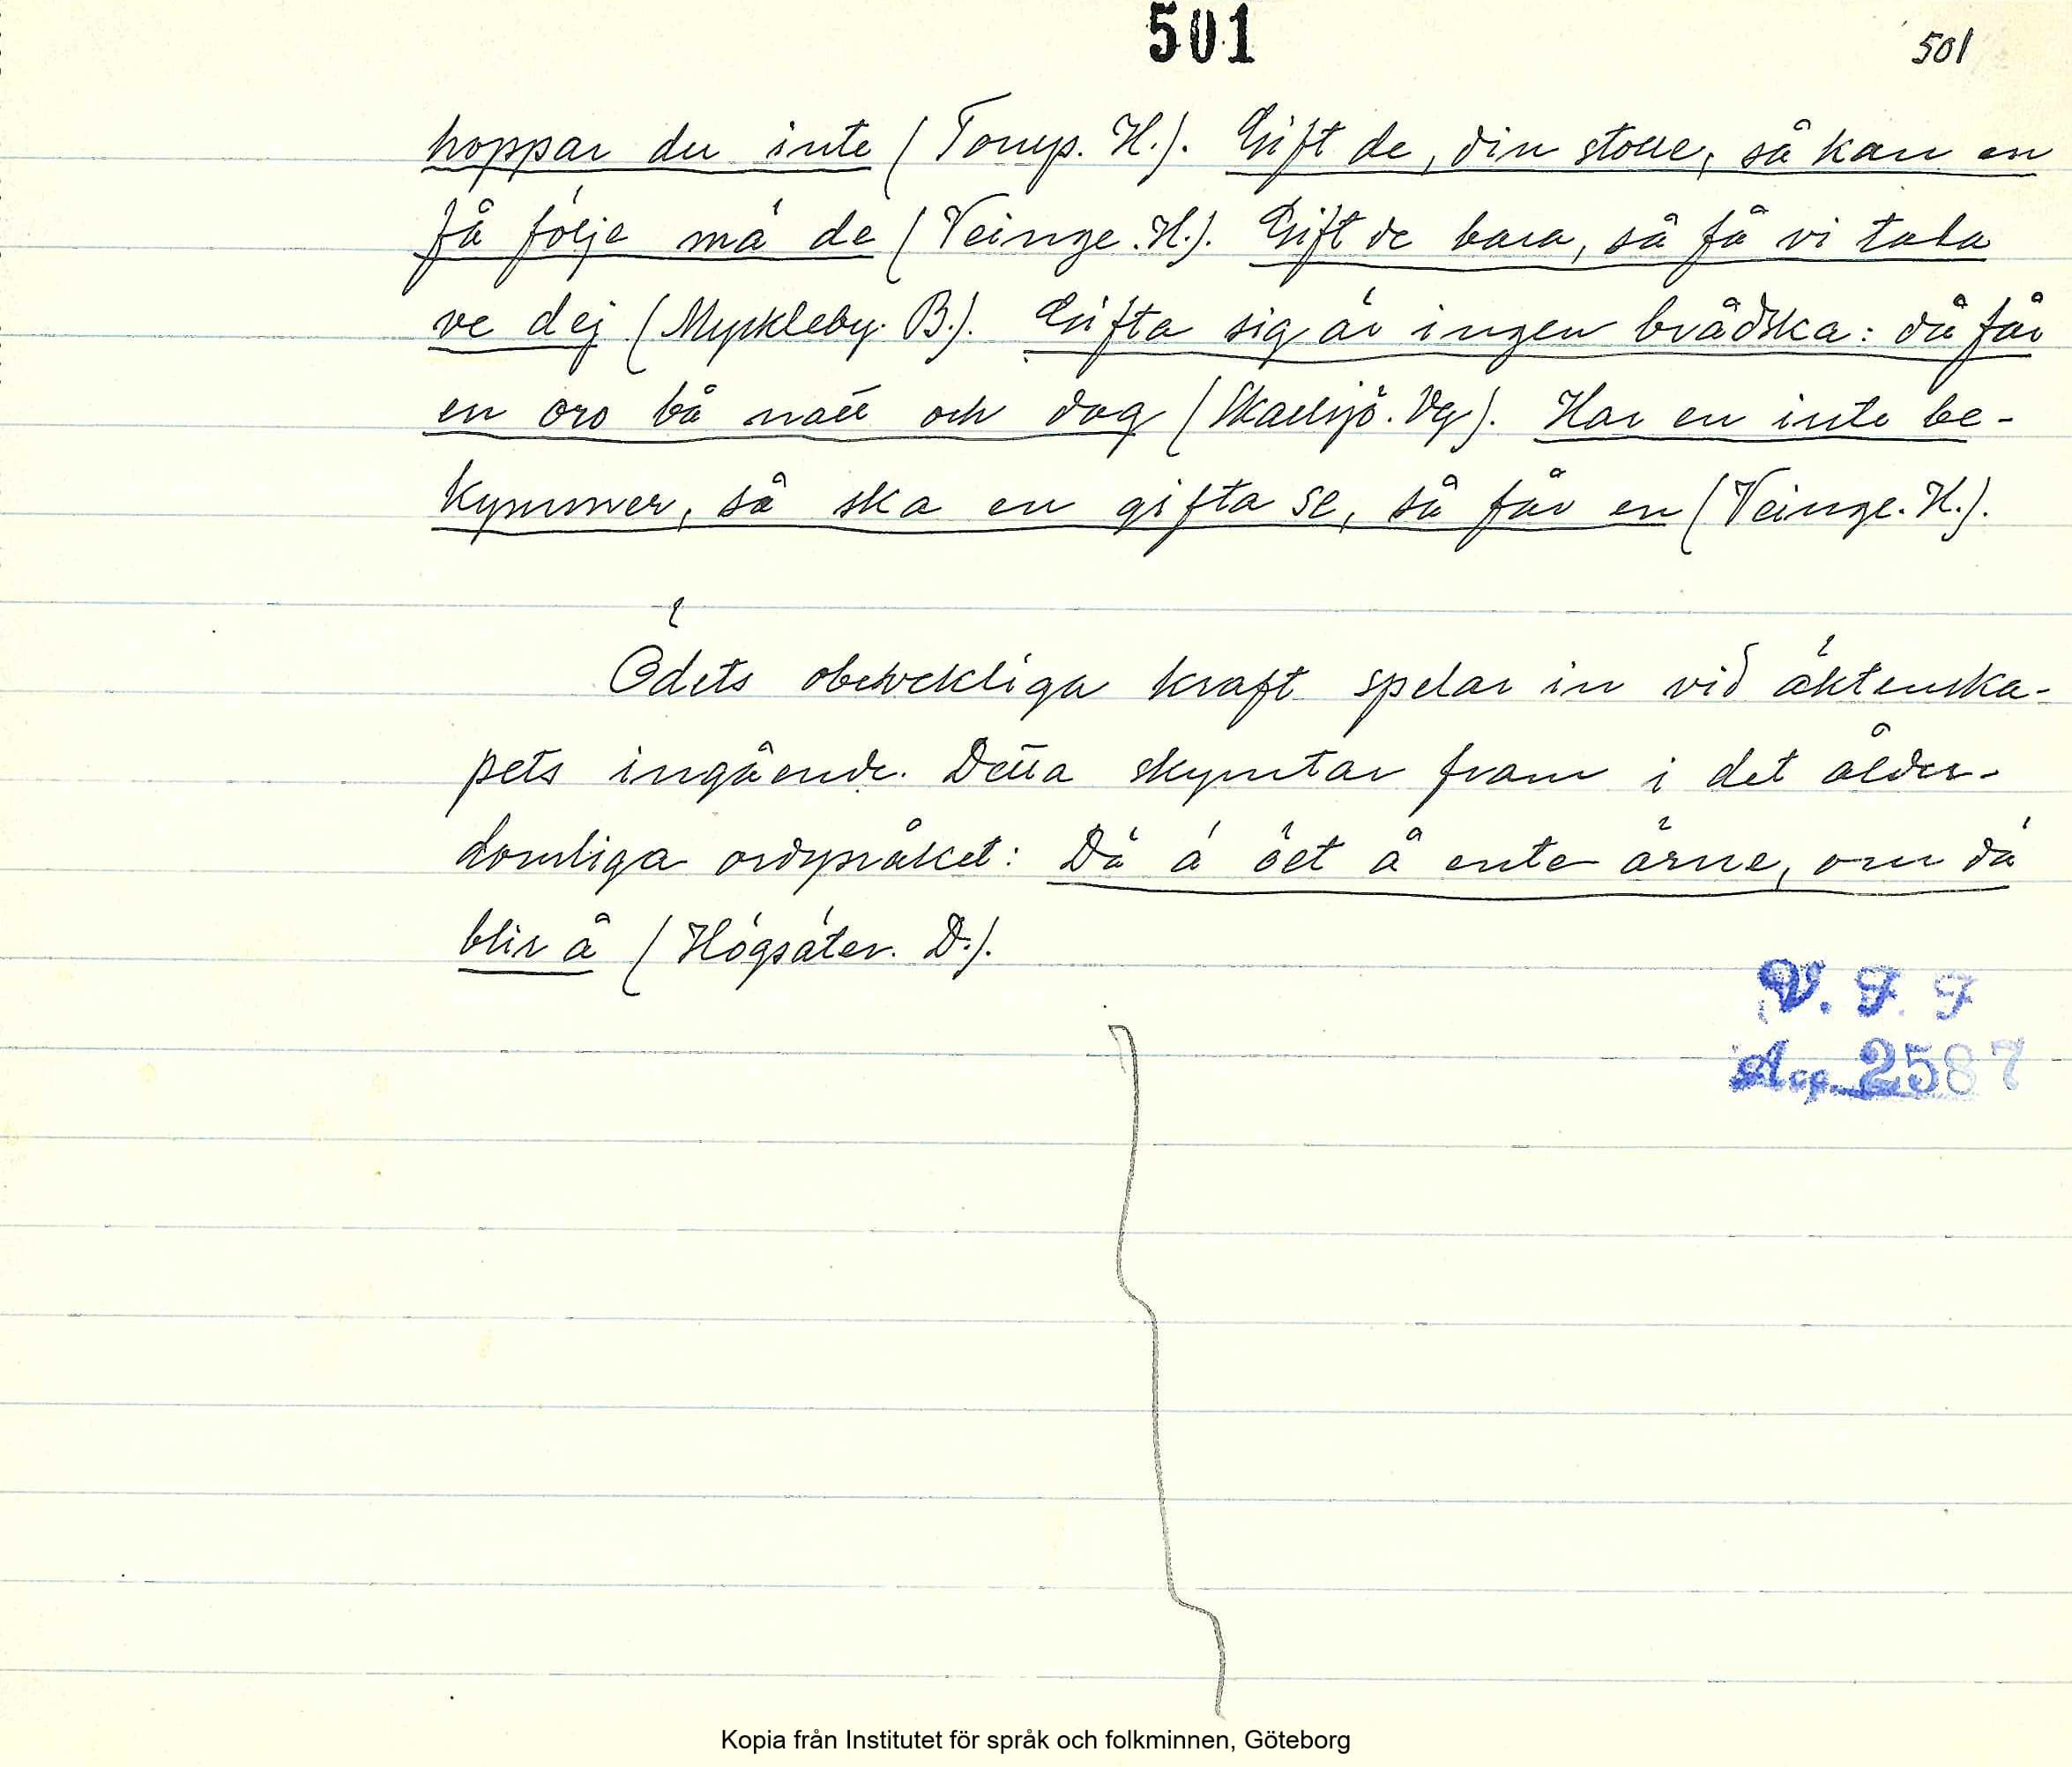 501
501
hoppar du inte (Torup. H.). Gift de, din stolle, så kan en
få följe mä de (Veinge. H.). Gift de bara, så få vi tala
ve dej (Myckleby. B.). Gifta sig är ingen brådska: då får
en oro bå natt och dag (Skallsjö. Vg). Har en inte be-
kymmer, så ska en gifta se, så får en (Veinge. H.).
Ödets obevekliga kraft spelar in vid äktenska-
pets ingående. Detta skymtar fram i det ålder-
domliga ordspråket: Dä ä öet å ente ärne, om dä
blir å (Högsäter. D.).
V. F. F
Acc. 2587
Kopia från Institutet för språk och folkminnen, Göteborg